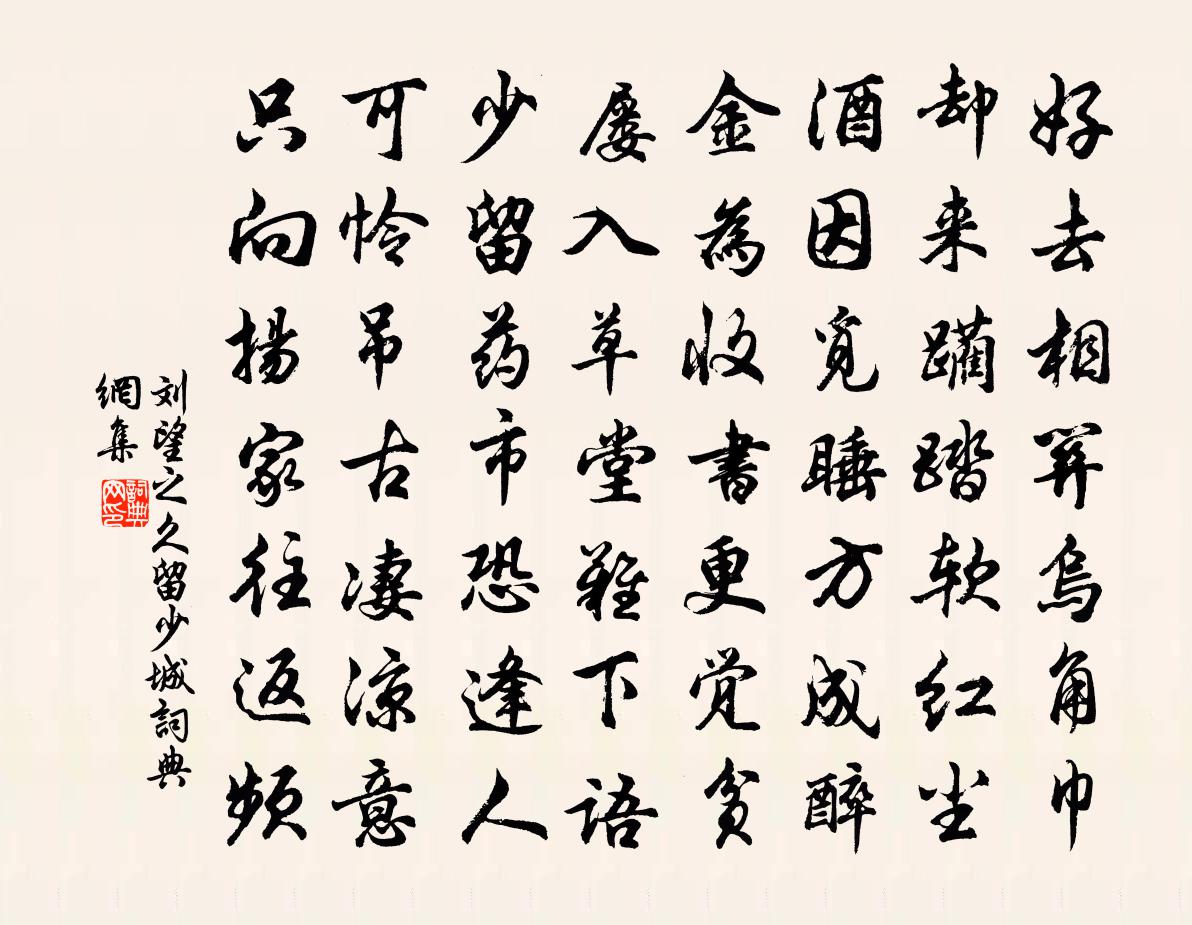 好去相羿烏角巾
却来躏踏软红尘
酒因觅睡方成醉
金為收書更觉贫
屡入草堂難下语
少留药市恐逢人
可怜吊古凄凉意
只向揚家往返频
刘望之久留少城詞典
網集
詞典
网印